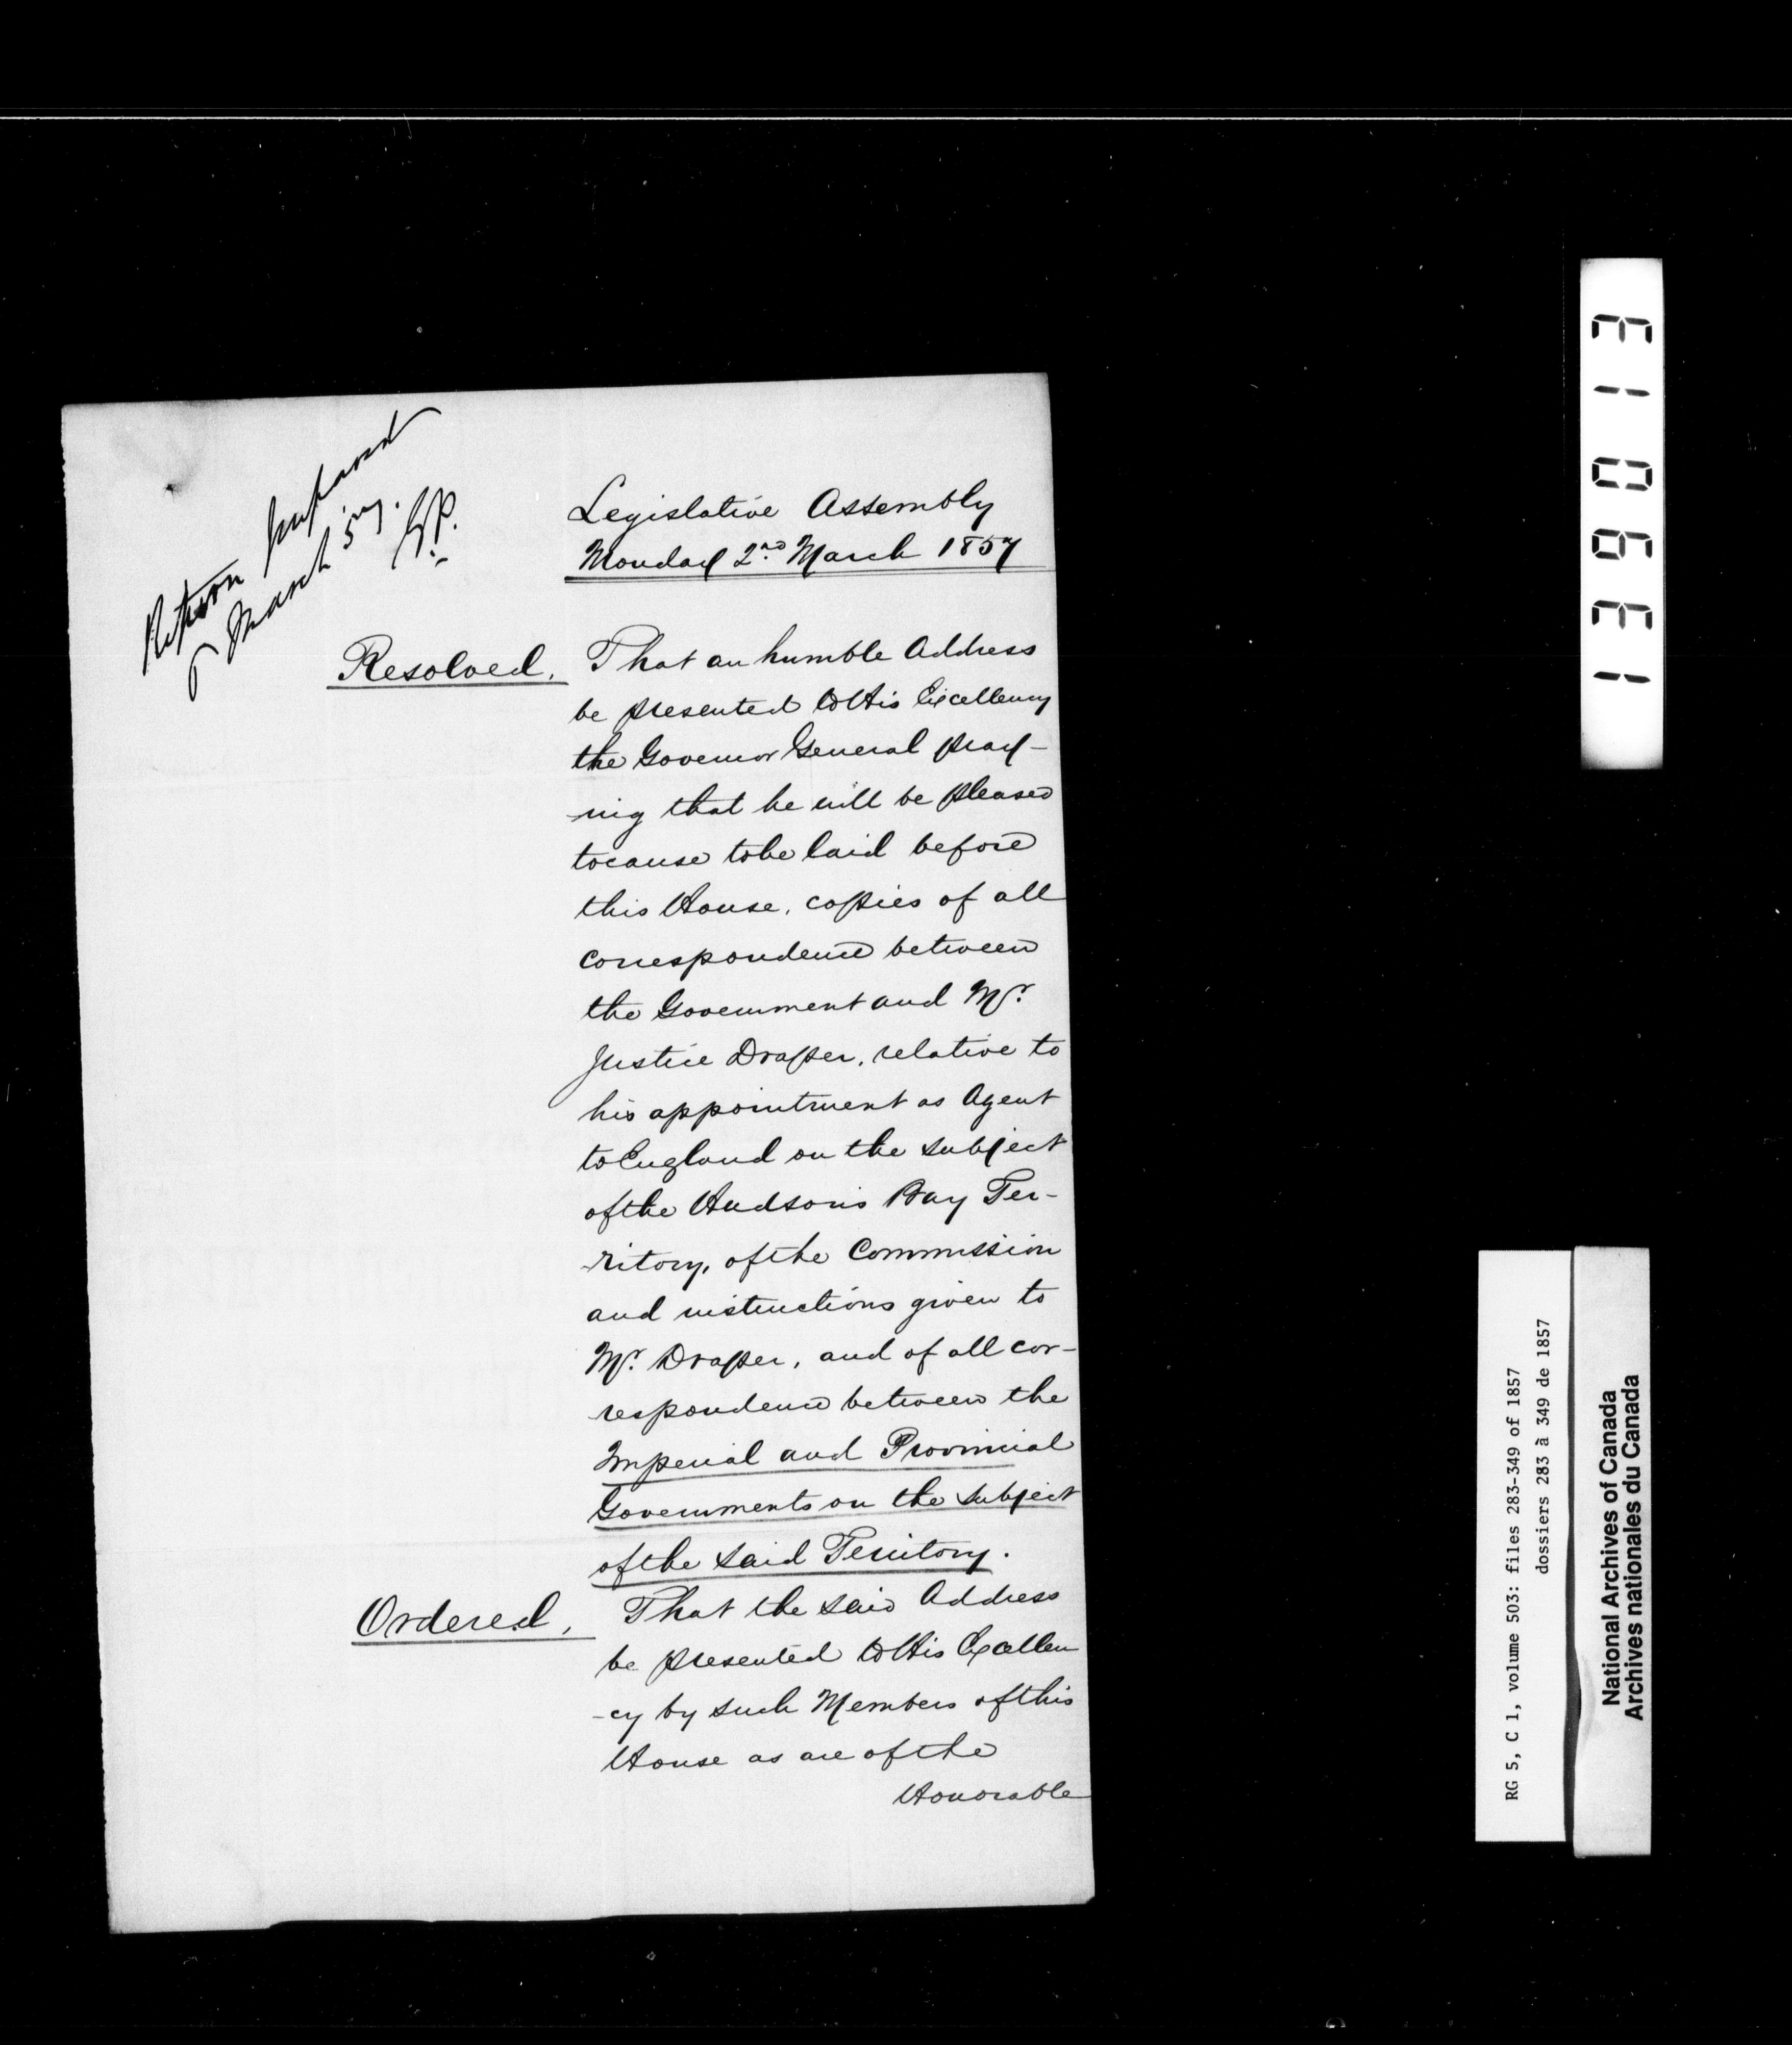 Return prepared
March 5
G.P.
Legislative Assembly
Monday 2nd March 1857
Resolved, That an humble Address
be presented to His Excellency
the Governor General pray-
-ing that he will be pleased
to cause to be laid before
this House, copies of all
correspondence between
the Government and Mr.
Justice Draper, relative to
his appointment as Agent
to England on the subject
of the Hudson's Bay Ter-
-ritory, of the Commission
and instructions given to
Mr. Draper, and of all cor-
-respondence between the
Imperial and Provincial
Governments on the subject
of the said Territory.
Ordered, That the said Address
be presented to His Excellen
-cy by such Members of this
House as are of the
Honorable
139013
RG 5, C 1, volume 503: files 283-349 of 1857
dossiers 283 à 349 de 1857
National Archives of Canada
Archives nationales du Canada